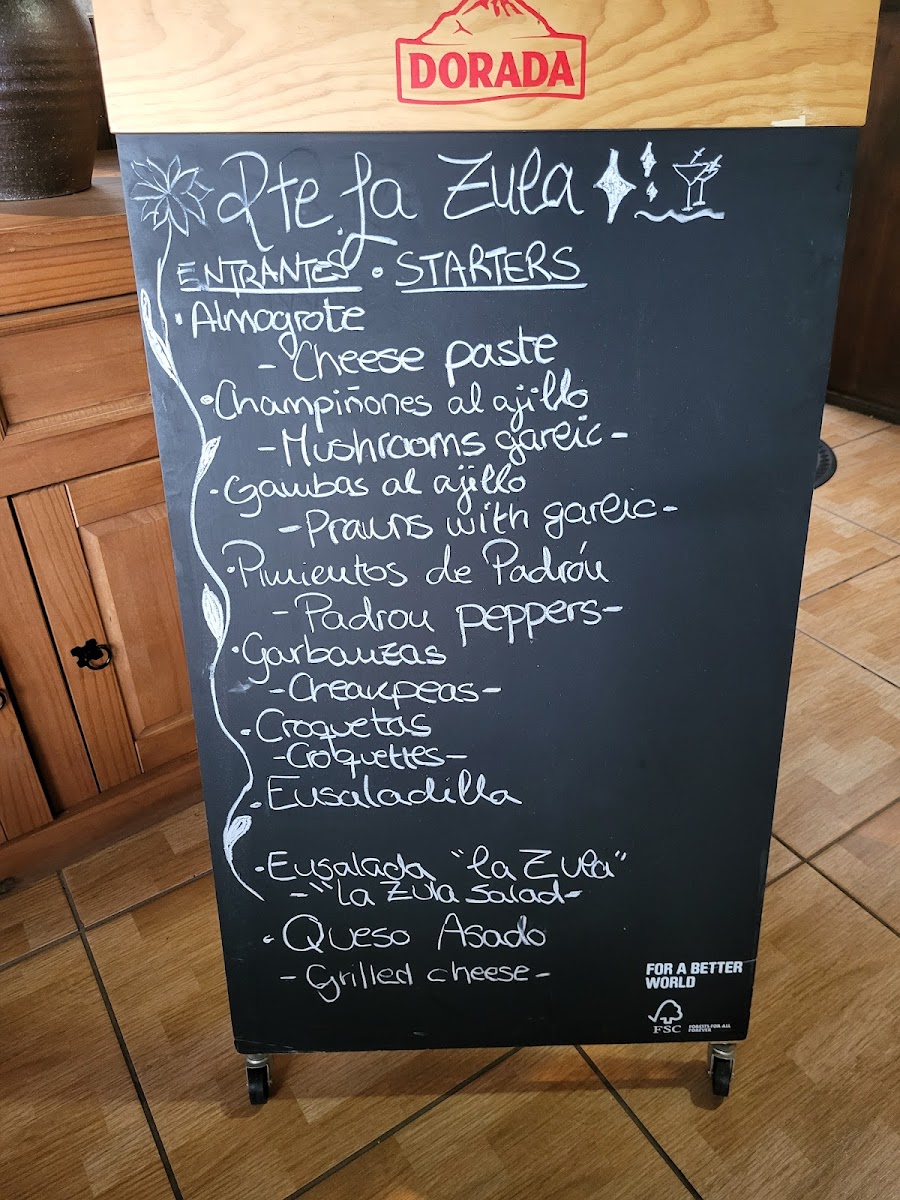 DORADA
Rte. La Zula
ENTRANTES • STARTERS
• Almogrote
- Cheese paste
• Champiñones al ajillo
- Mushrooms garlic -
• Gambas al ajillo
- Prawns with garlic -
• Pimientos de Padrón
- Padron peppers -
• Garbanzas
- Cheakpeas -
• Croquetas
- Croquettes -
• Ensaladilla
• Ensalada "la Zula"
- "la Zula salad -
• Queso Asado
- Grilled cheese -
FOR A BETTER
WORLD
FSC
FORESTS FOR ALL
FOREVER